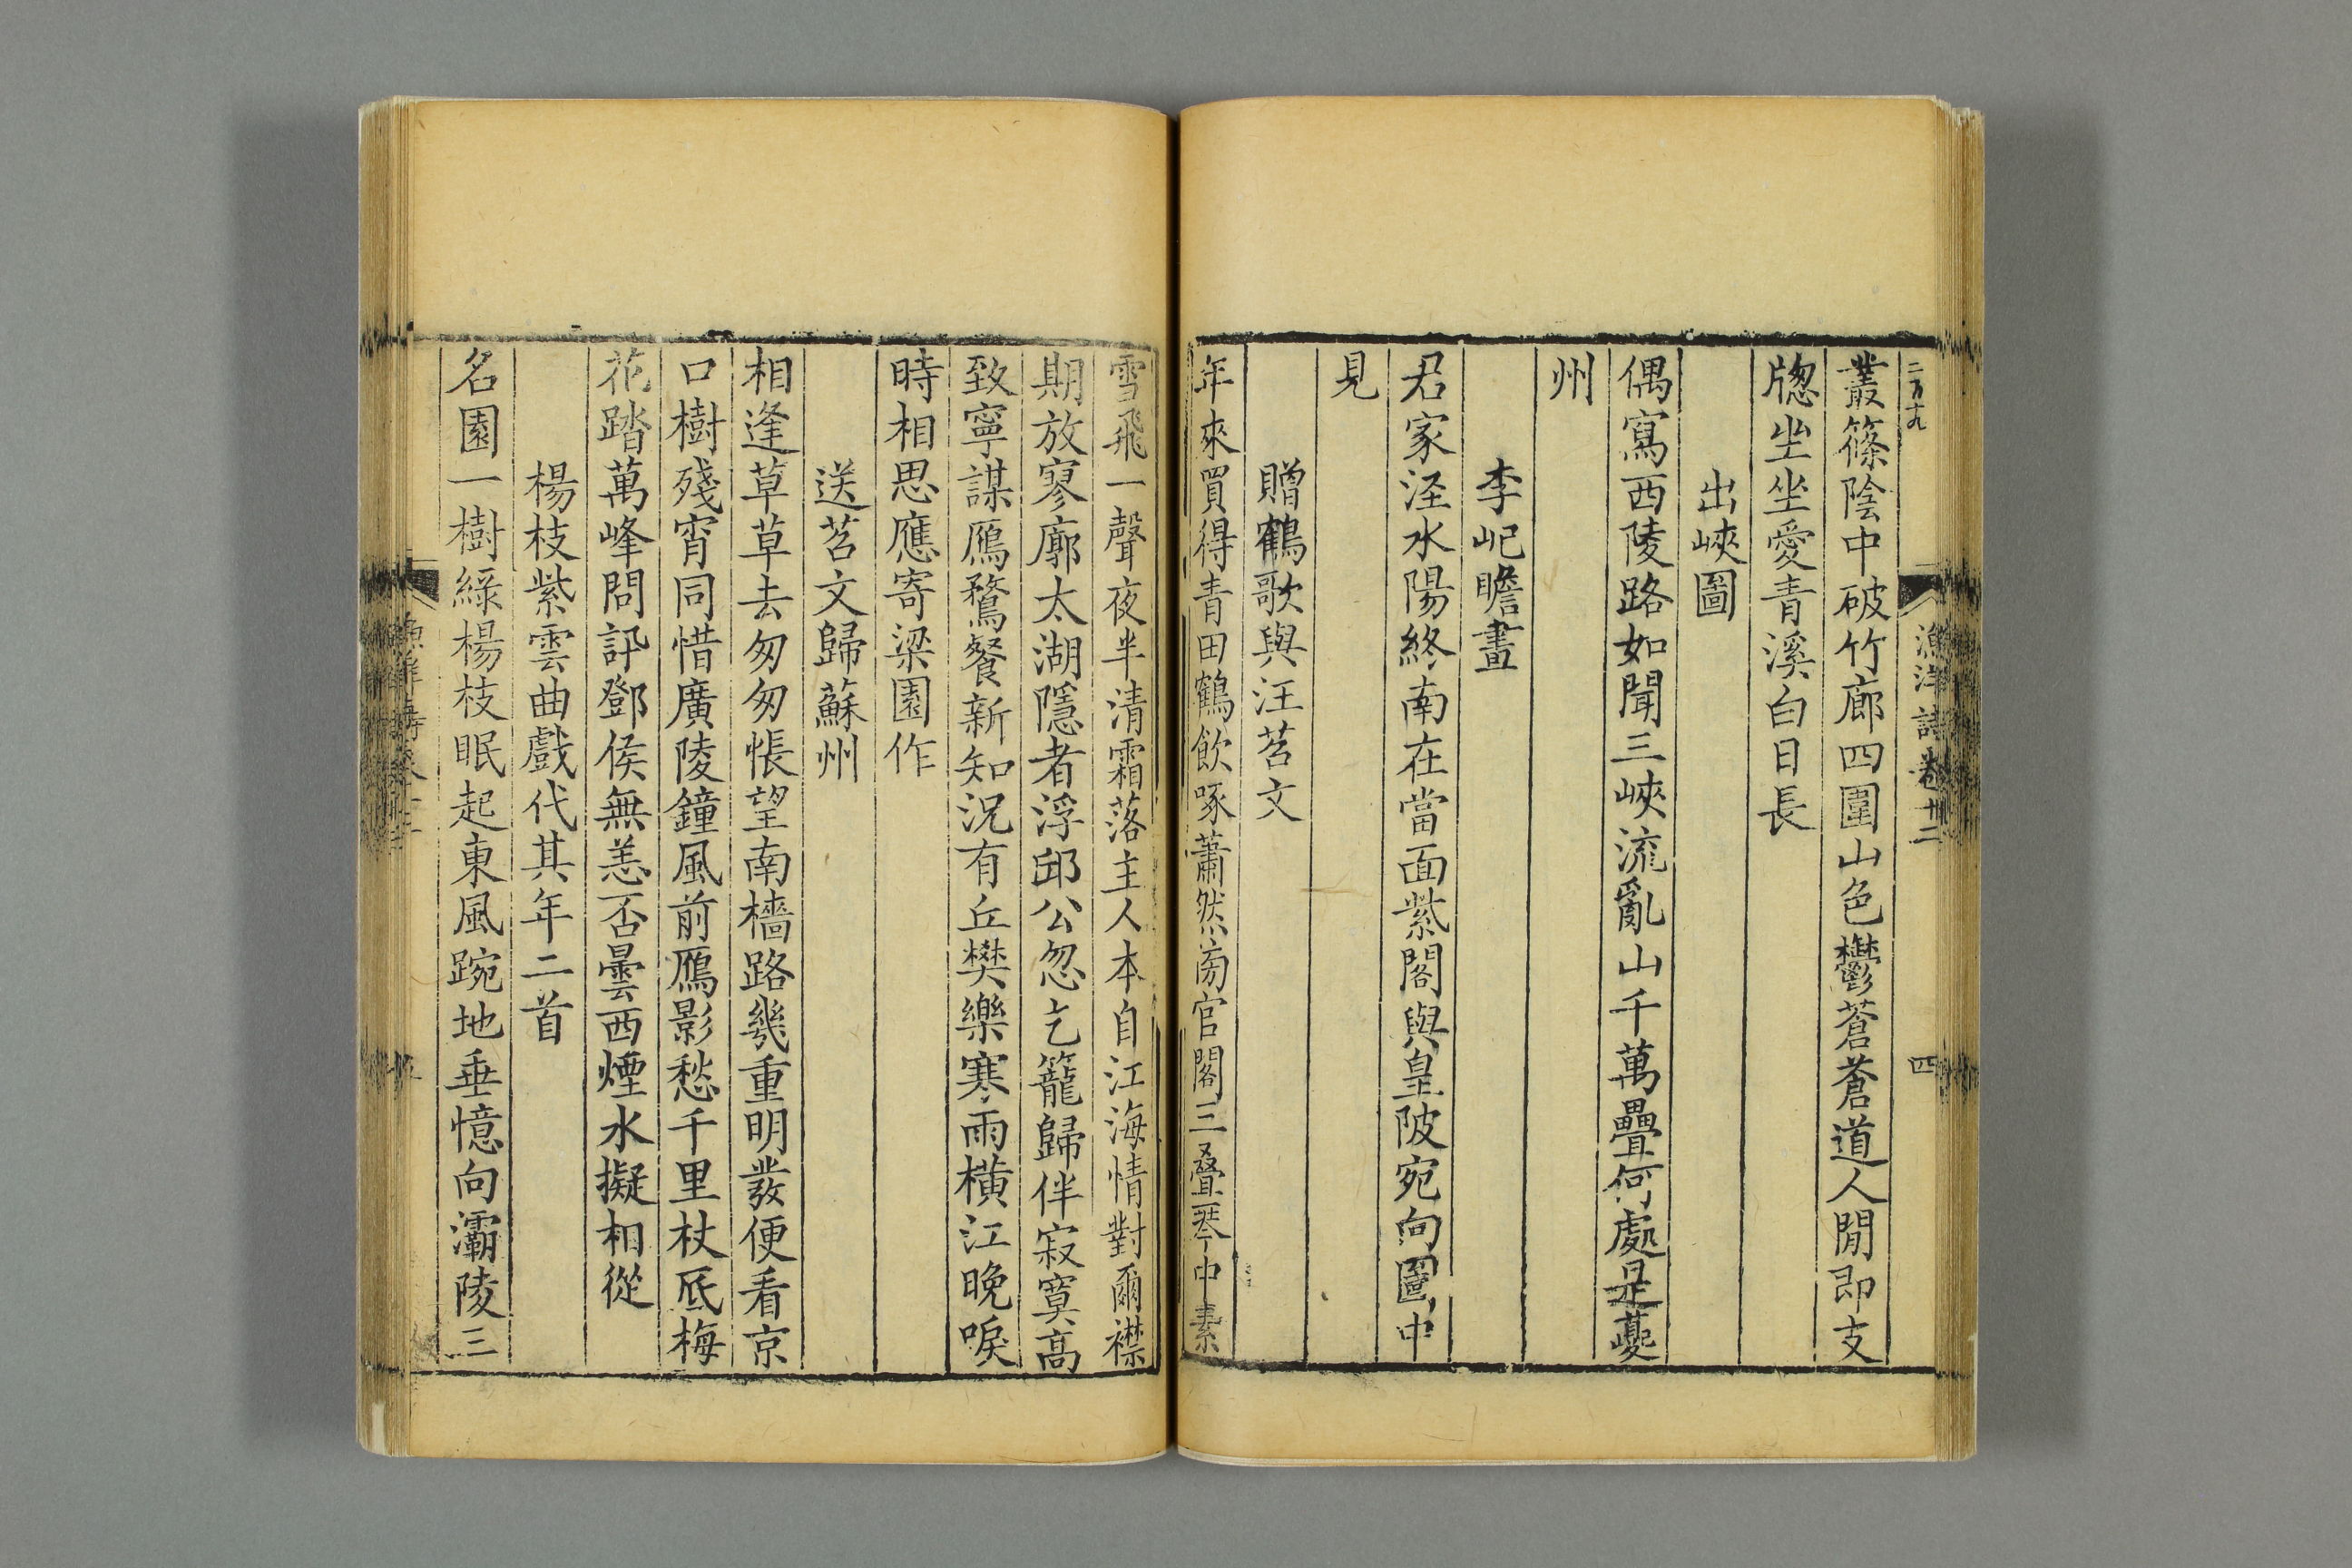 二百十九
漁洋詩卷廿二
四
叢篠陰中破竹廊四圍山色鬱蒼蒼道人閒即支
牕坐坐愛青溪白日長
出峽圖
偶寫西陵路如聞三峽流亂山千萬疊何處是夔
州
李屺瞻畫
君家涇水陽終南在當面紫閣與皇陂宛向圖中
見
贈鶴歌與汪苕文
年來買得青田鶴飲啄蕭然傍官閣三疊琴中素
雪飛一聲夜半清霜落主人本自江海情對爾襟
期放寥廓太湖隱者浮邱公忽乞籠歸伴寂寞高
致寧謀鴈鶩餐新知況有丘樊樂寒雨橫江晚唳
時相思應寄梁園作
送苕文歸蘇州
相逢草草去匆匆悵望南檣路幾重明發便看京
口樹殘宵同惜廣陵鐘風前鴈影愁千里杖底梅
花踏萬峰問訊鄧侯無恙否曇西煙水擬相從
楊枝紫雲曲戲代其年二首
名園一樹綠楊枝眠起東風踠地垂憶向灞陵三